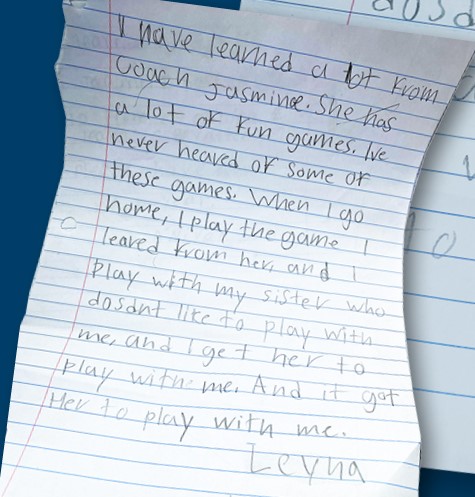 dosd
I have learned a lot from
Coach Jasmine. She has
a lot of fun games. Ive
never heaved of some of
these games. When I go
home, I play the game I
leaved from her, and I
play with my sister who
dosdnt like to play with
me, and I get her to
play with me. And it got
Her to play with me.
Leyna